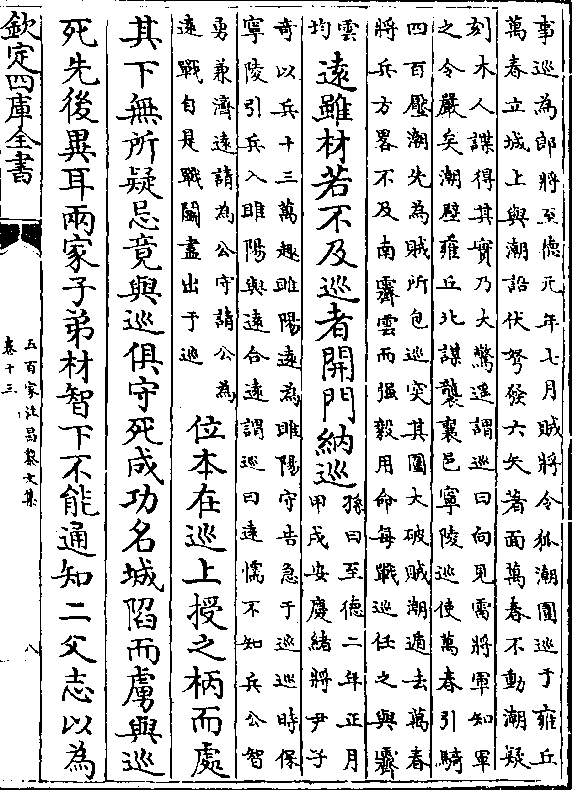 事巡為郎將至德元年七月賊將令狐潮圍巡于雍丘
萬春立城上與潮語伏弩發六矢著面萬春不動潮疑
刻木人諜得其實乃大驚遥謂巡曰向見雷將軍知軍
之令嚴矣潮壁雍丘北謀襲襄邑寧陵巡使萬春引騎
四百壓潮先為賊所包巡突其圍大破賊潮遁去萬春
將兵方畧不及南霽雲而强毅用命每戰巡任之與霽
雲
均
遠雖材若不及巡者開門納巡
孫曰至德二年正月
甲戌安慶緒將尹子
奇以兵十三萬趣睢陽遠為睢陽守告急于巡巡時保
寧陵引兵入睢陽與遠合遠謂巡曰遠懦不知兵公智
勇兼濟遠請為公守請公為
遠戰自是戰鬬盡出于巡
位本在巡上授之柄而處
其下無所疑忌竟與巡俱守死成功名城陷而虜與巡
死先後異耳兩家子弟材智下不能通知二父志以為
欽定四庫全書
五百家注昌黎文集
卷十三
八